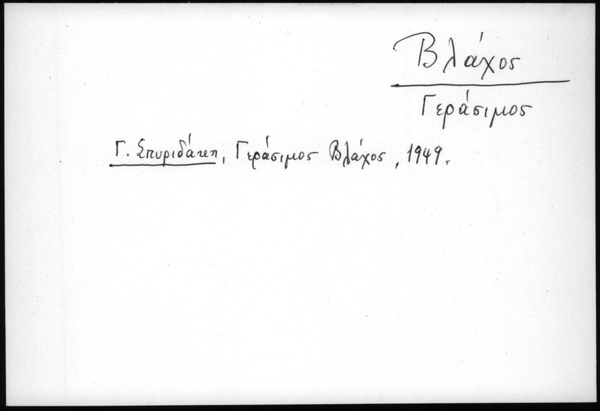 Βλάχος
Γεράσιμος
Γ. Σπυριδάκη, Γεράσιμος Βλάχος, 1949.